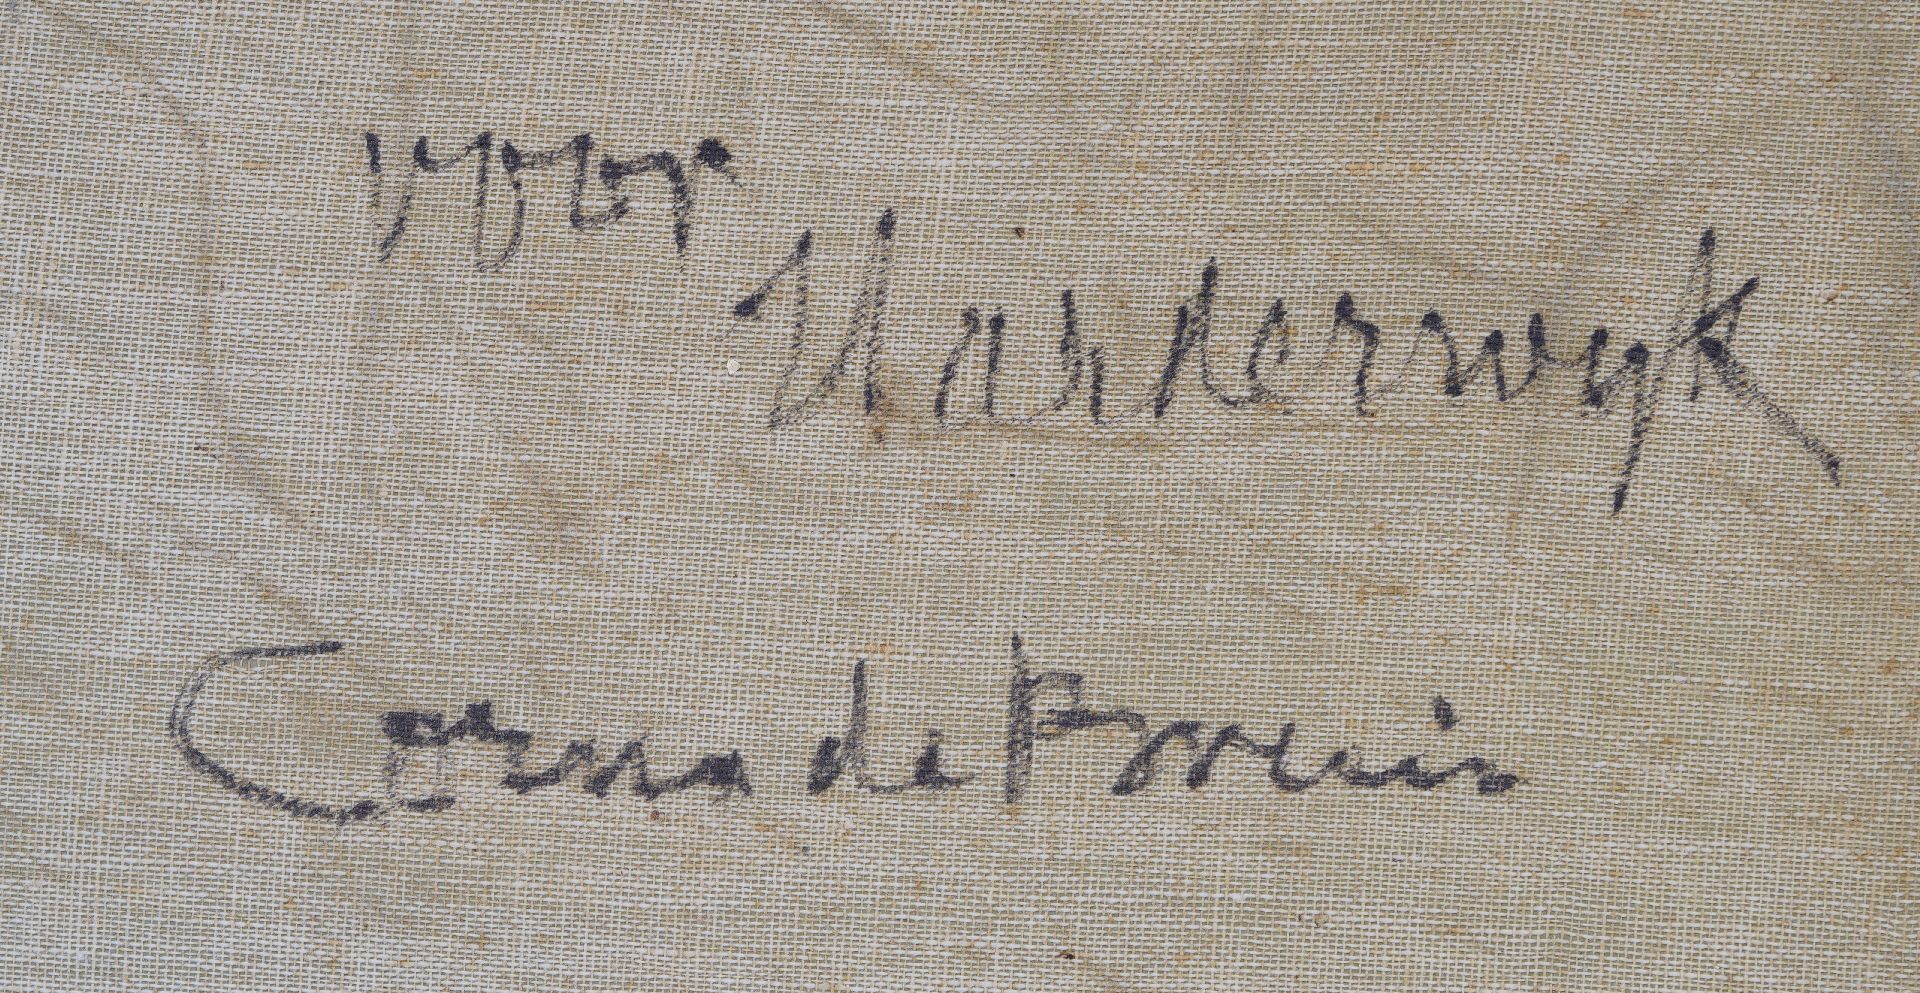 voor
Harderwyk
Corna de Bruin